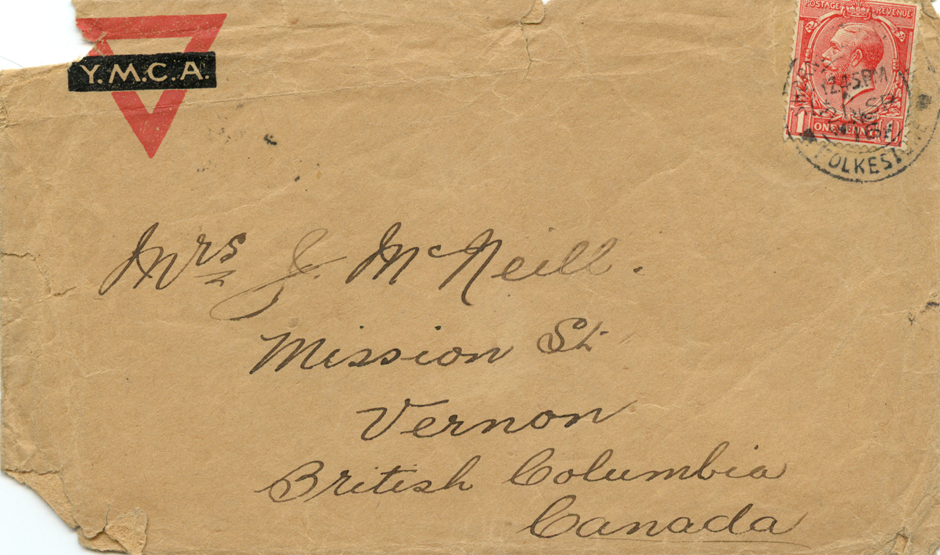 Y.M.C.A.
POSTAGE REVENUE
12.45 PM
1 ONE PENNY 1
FOLKESTONE
Mrs J. McNeill.
Mission St.
Vernon
British Columbia
Canada